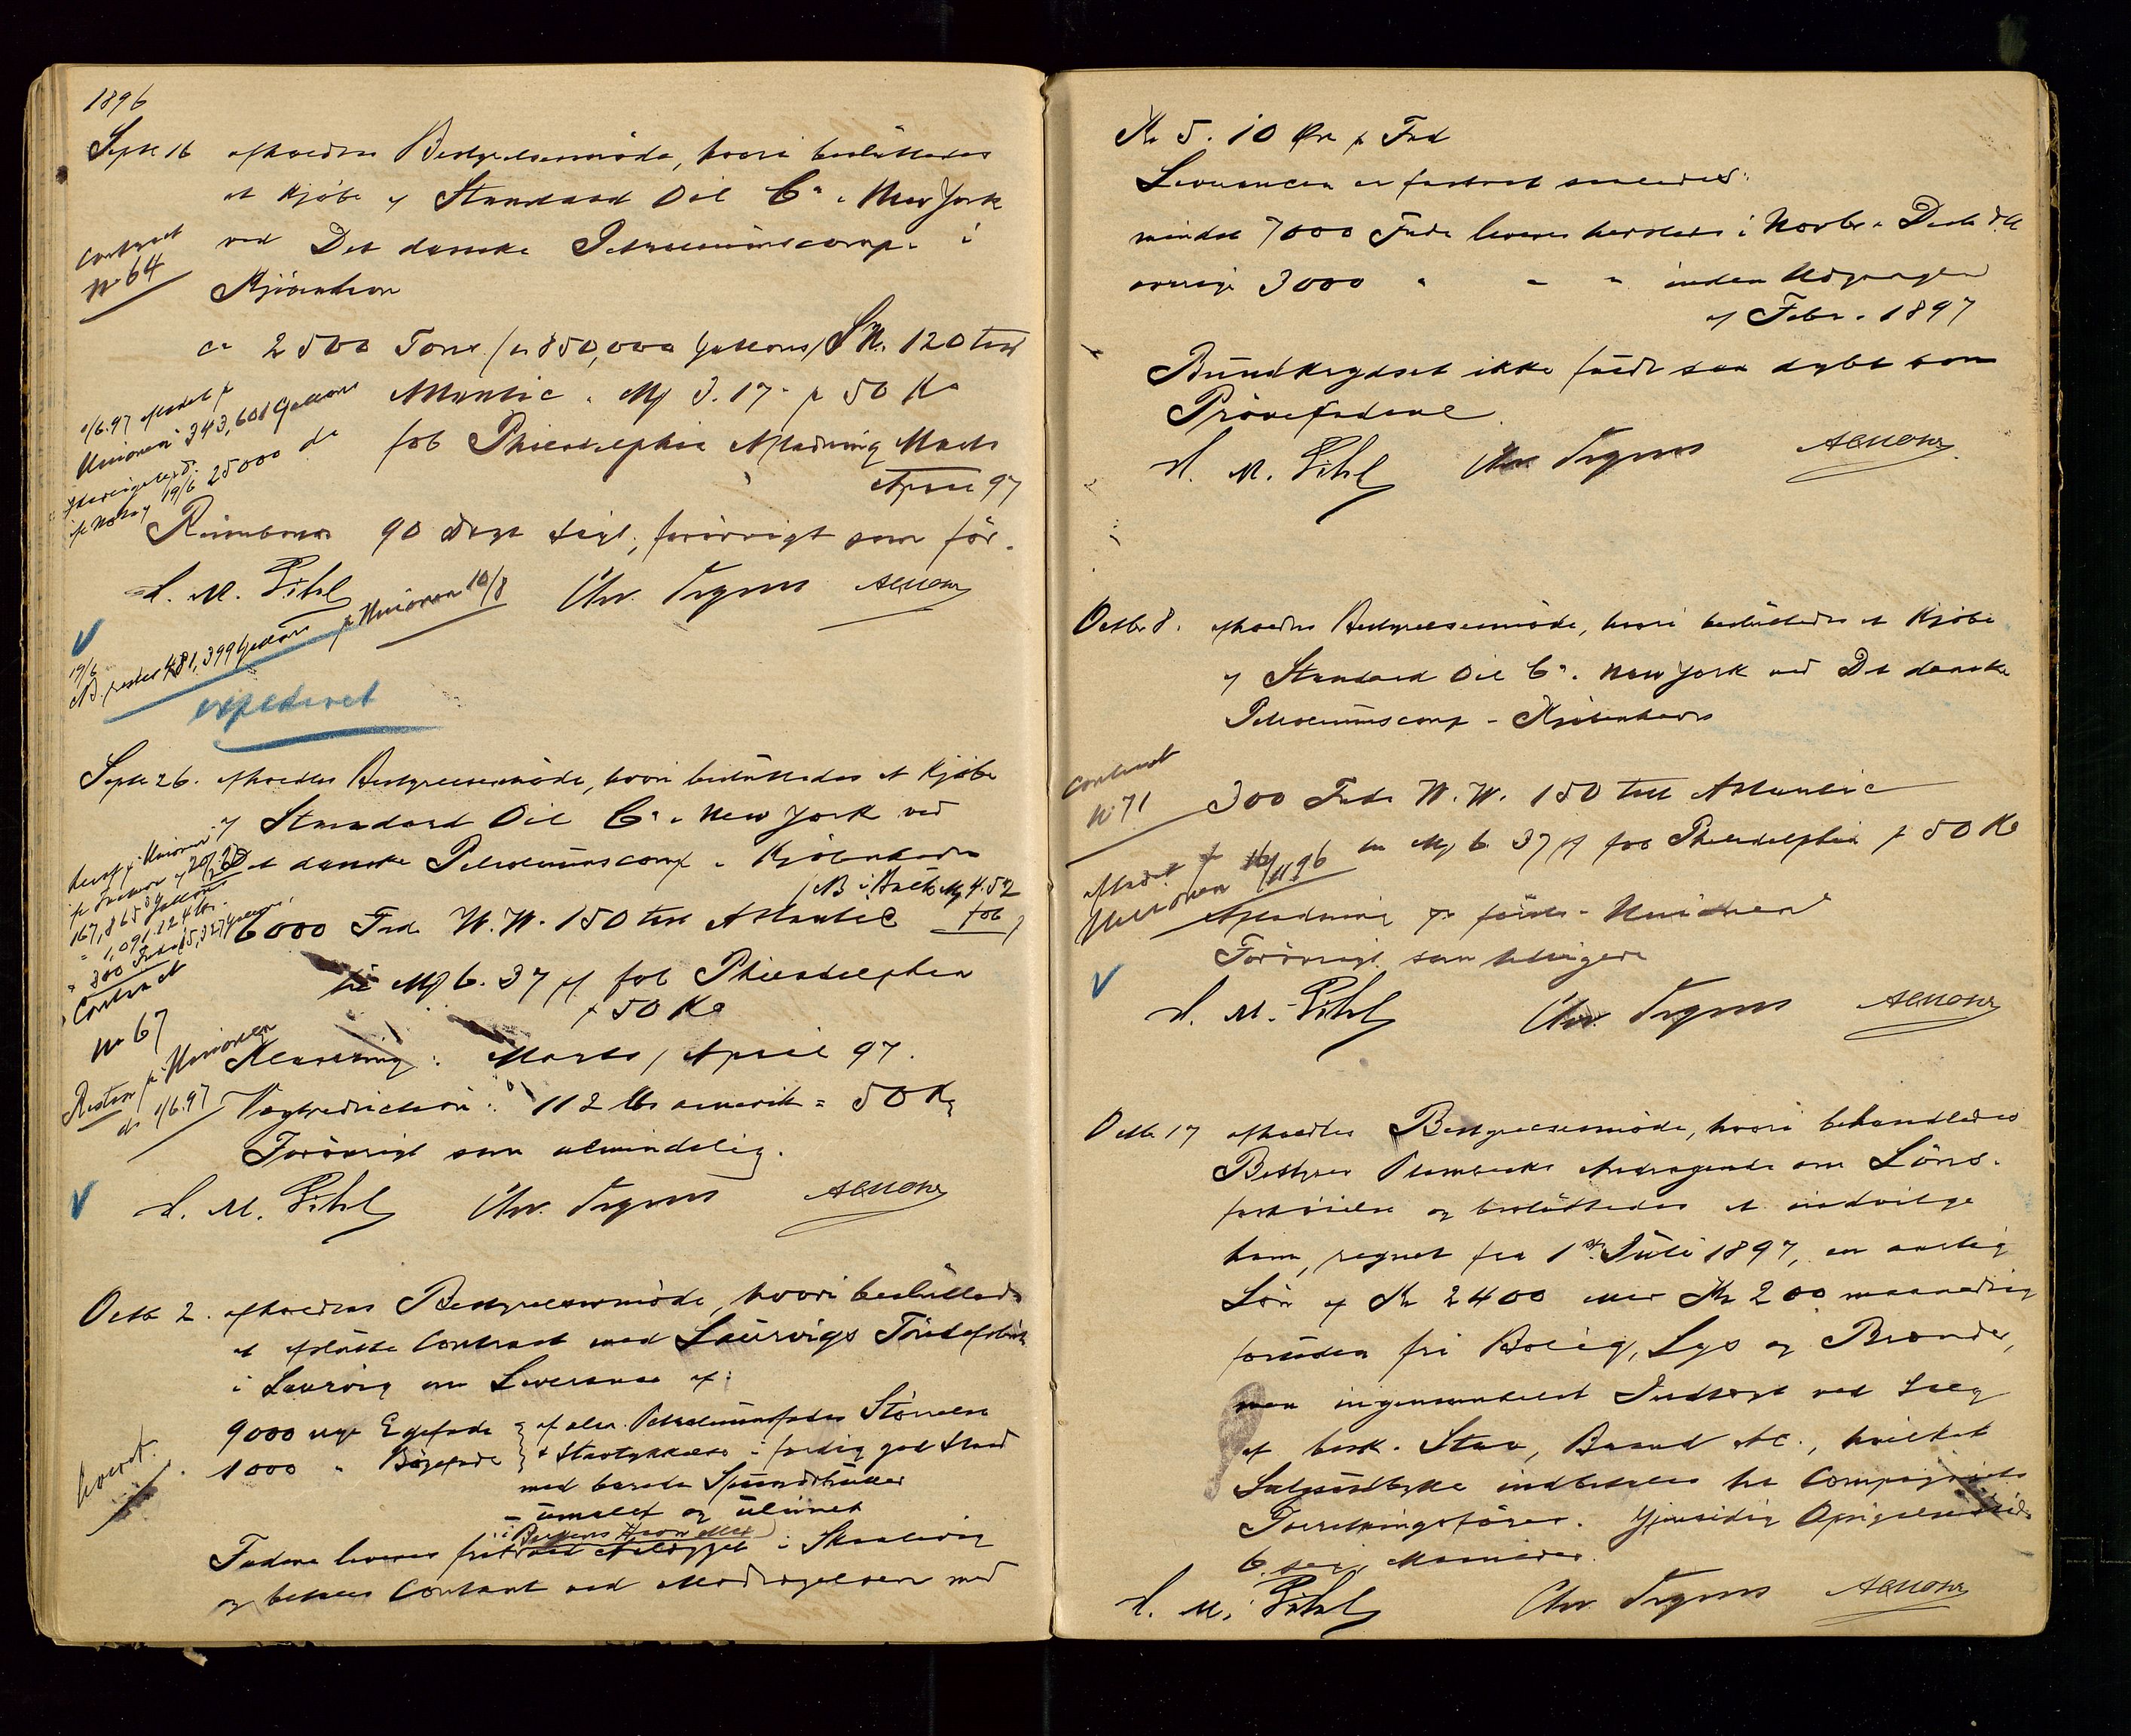 1896
Septr 16 afholdtes Bestyrelsesmöde, hvori beslüttedes
at kjöbe af Standard Oil Co. New York
ved Det danske Petroleumscomp. i
Kjöbenhavn
Contract
No 64
ca 2500 Tons (ca 850,000 Gallons) 120 test
Atlantic. Mf 3.17 pr 50 Ko
fob Philadelphia Afladning Marts
April 97
1/6.97 afladet pr
"Unionen" 343,601 Gallons
19/6 25000 do
Rembours 90 Dage sigt, forövrigt som för.
L. M. Pihl Chr.
19/6
NB. rester 481,399 Gallons pr Unionen 10/8
expederet
Septr 26. afholdtes Bestyrelsesmöde, hvori beslüttedes at kjöbe
af Standard Oil Co. New York ved
Det danske Petroleumscomp. Kjöbenhavn
(NB i Bulk Mf 4.52
fob)
6000 Fade W.W. 150 test Atlantic
til Mf 6.37 pf fob Philadelphia
pr 50 Ko
167,865 Gallons
300 Fade
Contract
No 67
Resten pr Unionen
do 1/6.97
Levering: Marts/April 97.
Vægtreduction: 112 lbs amerik = 50 Ko
Forövrigt som almindelig.
L. M. Pihl Chr.
Octbr 2. afholdtes Bestyrelsesmöde, hvori beslüttedes
at afslütte Contract med Laurvigs Töndefabrik
i Laurvig om Leverance af:
9000 nye Egefade } af alm. Petroleumsfades Störrelse
1000 " Bögefade } & Stavtykkelse i færdig god Stand
med borede Spundshuller
umalet og ulimet
i Bergens Havn eller
Fadene leveres frit ved Anlægget i Skaalevig
og betales Contant ved Modtagelsen med
Kr 5.10 Øre pr Fad
Leverancen er fastsat saaledes:
mindst 7000 Fade leveres herstedes i Novbr & Decbr d.A.
övrige 3000 " " " inden Udgangen
af Febr. 1897
Bundkrydset ikke saa dybt som
Prövefadene.
L. M. Pihl Chr.
Octbr 8. afholdtes Bestyrelsesmöde, hvori beslüttedes at kjöbe
af Standard Oil Co. New York ved Det danske
Petroleumscomp. Kjöbenhavn
Contract
No 71
300 Fade W.W. 150 test Atlantic
til Mf 6.37 pf fob Philadelphia pr 50 Ko
Afladet pr
Unionen 16/11 96
Afladning pr förste "Unionen"
Forövrigt som tidligere
L. M. Pihl Chr.
Octbr 17 afholdtes Bestyrelsesmöde, hvori behandledes
Bestyrer Andragende om Löns-
forhöielse og beslüttedes at indvilge
ham, regnet fra 1ste Juli 1897, en aarlig
Lön af Kr 2400 eller Kr 200 maanedlig
foruden fri Bolig, Lys og Brænde,
men ingensomhelst Indtægt ved Salg
af besk. Stav, Baand etc., hvilket
Salgsudbytte indbetales til Compagniets
Forretningsförer. Gjensidig Opsigelsestid
6 sex Maaneder.
L. M. Pihl Chr.